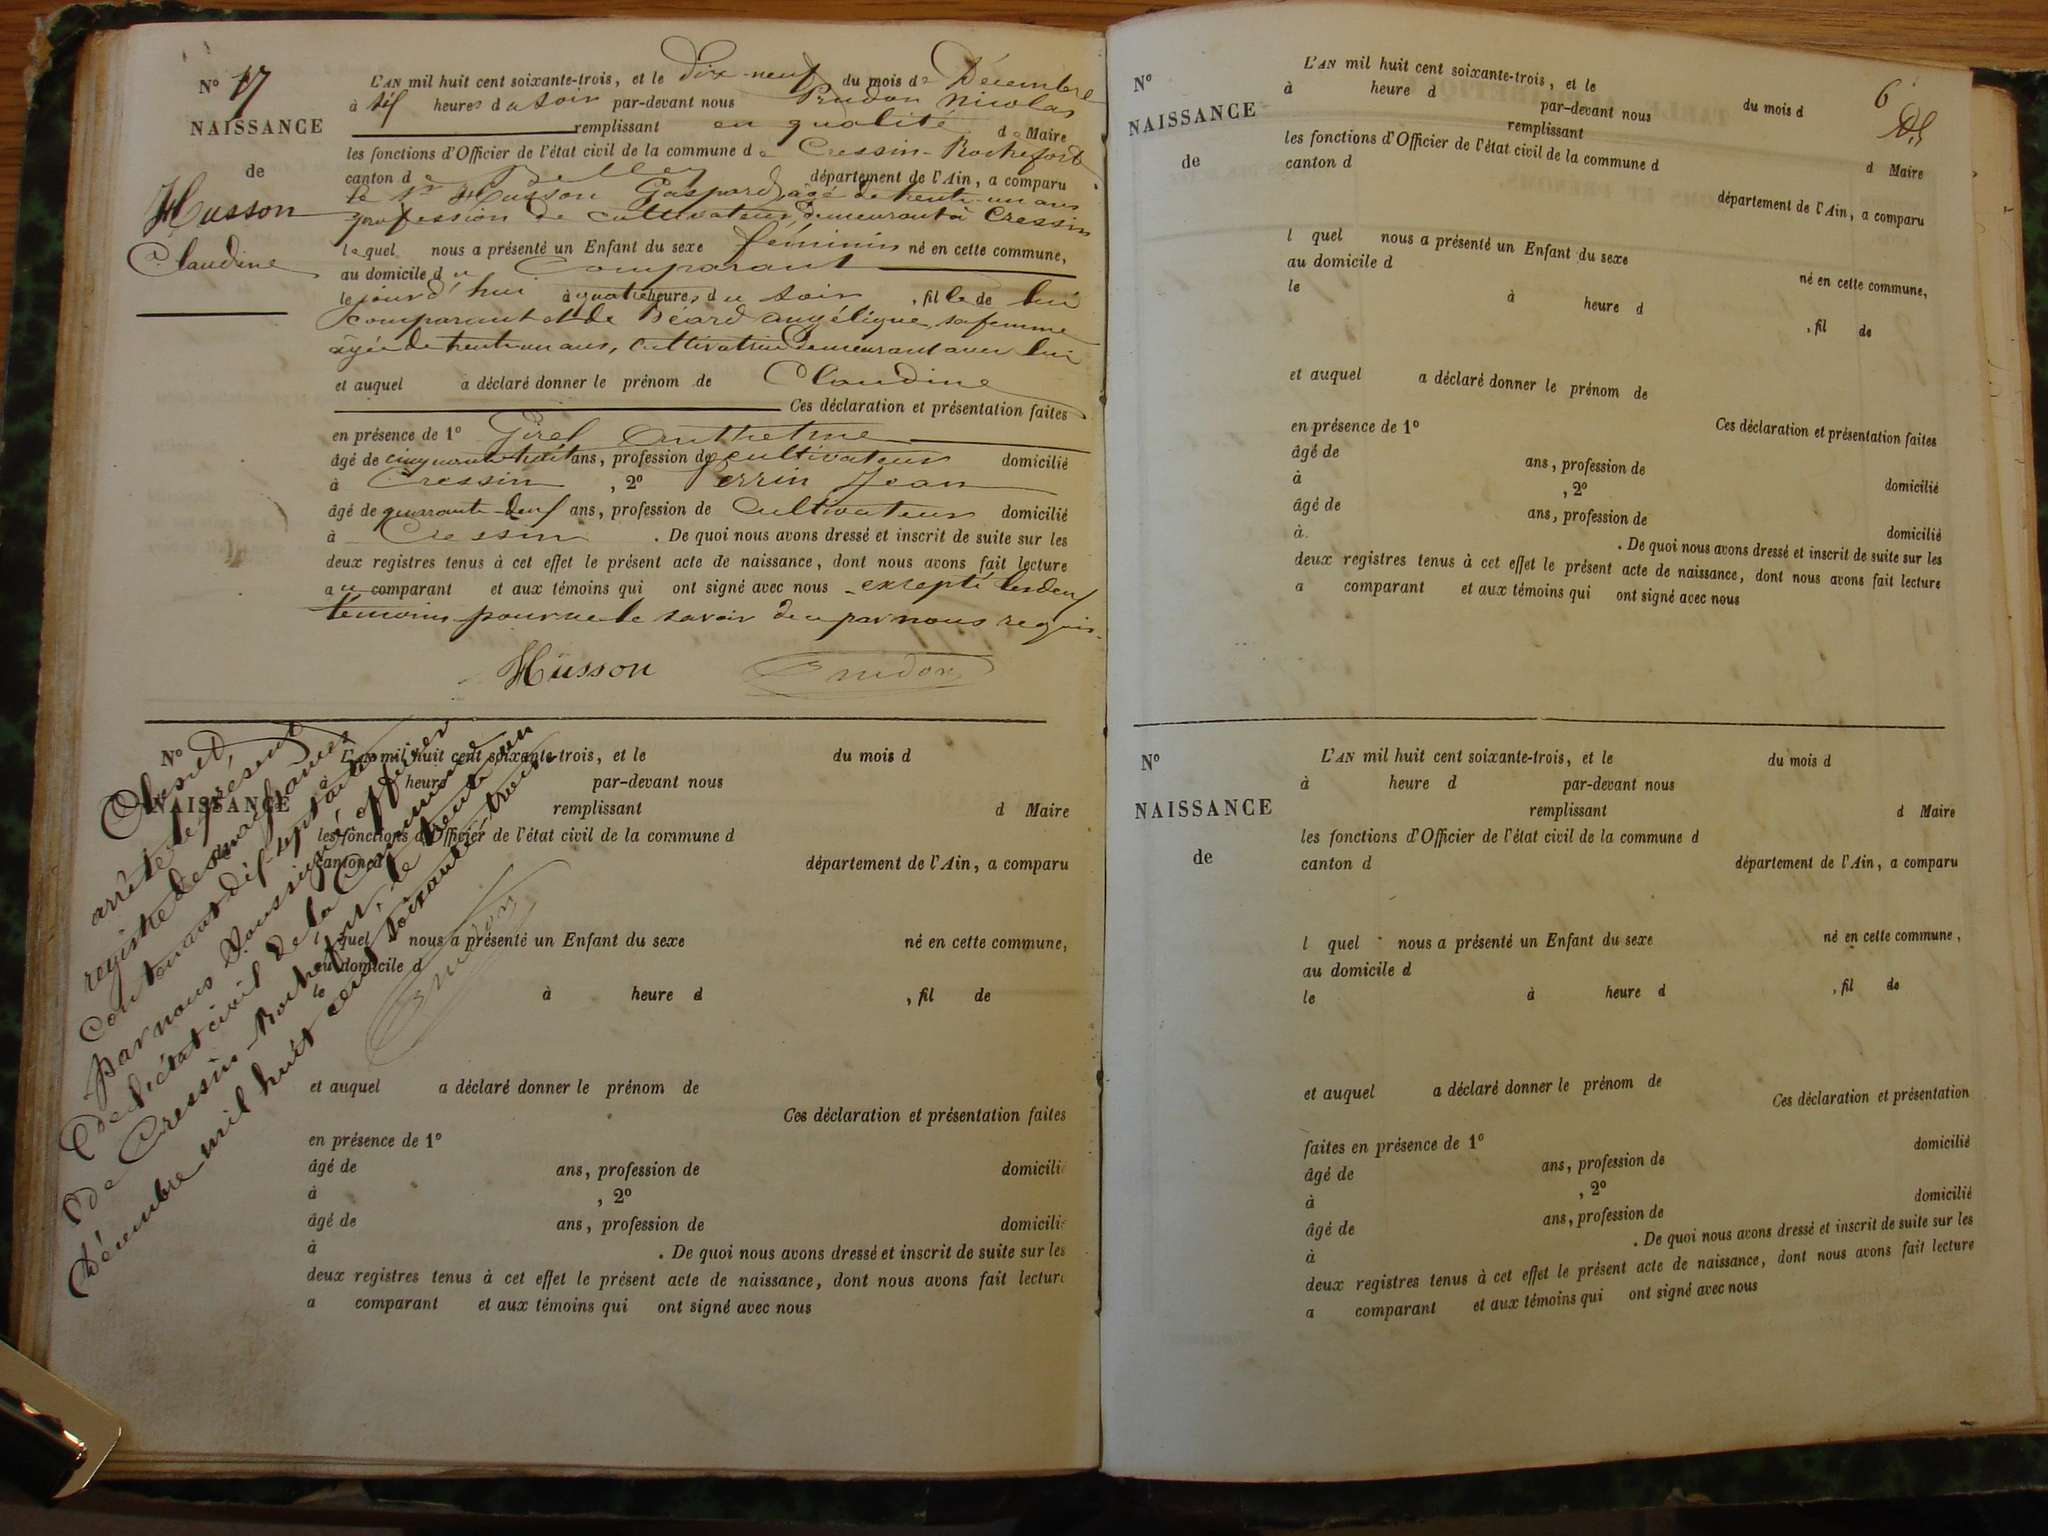 N° 17
NAISSANCE
de
Husson
Claudine
L'AN mil huit cent soixante-trois, et le Dix-neuf du mois de Décembre
à six heures du soir par-devant nous Prudon Nicolas
remplissant en qualité de Maire
les fonctions d'Officier de l'état civil de la commune de Cressin-Rochefort
canton de Belley département de l'Ain, a comparu
le Sr Husson Gaspard, âgé de trente-un ans
profession de cultivateur, demeurant à Cressin
lequel nous a présenté un Enfant du sexe féminin né en cette commune,
au domicile du Comparant
le jourd'hui à quatre heures du soir, fille de lui
comparant et de Béard angélique, sa femme
âgée de trente un ans, cultivatrice demeurant avec lui
et auquel a déclaré donner le prénom de Claudine
Ces déclaration et présentation faites
en présence de 1° Girel Anthelme
âgé de cinquante huit ans, profession de cultivateur domicilié
à Cressin, 2° Perrin Jean
âgé de quarante-deux ans, profession de Cultivateur domicilié
à Cressin. De quoi nous avons dressé et inscrit de suite sur les
deux registres tenus à cet effet le présent acte de naissance, dont nous avons fait lecture
au comparant et aux témoins qui ont signé avec nous excepté les deux
témoins pour ne le savoir de ce par nous requis.
Husson Prudon
N°
NAISSANCE
L'AN mil huit cent soixante-trois, et le du mois d
à heure par-devant nous
remplissant d Maire
les fonctions d'Officier de l'état civil de la commune d
canton d département de l'Ain, a comparu
l quel nous a présenté un Enfant du sexe né en cette commune,
au domicile d
le à heure d , fil de
et auquel a déclaré donner le prénom de
Ces déclaration et présentation faites
en présence de 1°
âgé de ans, profession de domicilié
à , 2°
âgé de ans, profession de domicilié
à . De quoi nous avons dressé et inscrit de suite sur les
deux registres tenus à cet effet le présent acte de naissance, dont nous avons fait lecture
a comparant et aux témoins qui ont signé avec nous
Clos et
arrêté le présent
registre des naissances
Contenant dix-sept actes
par nous Soussigné officier
de l'état civil de la Commune
de Cressin-Rochefort, le trente un
Décembre mil huit cent soixante trois
Prudon
6
N°
NAISSANCE
de
L'AN mil huit cent soixante-trois, et le du mois d
à heure d par-devant nous
remplissant d Maire
les fonctions d'Officier de l'état civil de la commune d
canton d département de l'Ain, a comparu
l quel nous a présenté un Enfant du sexe né en cette commune,
au domicile d
le à heure d , fil de
et auquel a déclaré donner le prénom de
Ces déclaration et présentation faites
en présence de 1°
âgé de ans, profession de domicilié
à , 2°
âgé de ans, profession de domicilié
à. . De quoi nous avons dressé et inscrit de suite sur les
deux registres tenus à cet effet le présent acte de naissance, dont nous avons fait lecture
a comparant et aux témoins qui ont signé avec nous
N°
NAISSANCE
de
L'AN mil huit cent soixante-trois, et le du mois d
à heure d par-devant nous
remplissant d Maire
les fonctions d'Officier de l'état civil de la commune d
canton d département de l'Ain, a comparu
l quel nous a présenté un Enfant du sexe né en cette commune,
au domicile d
le à heure d , fil de
et auquel a déclaré donner le prénom de
Ces déclaration et présentation
faites en présence de 1°
âgé de ans, profession de domicilié
à , 2°
âgé de ans, profession de domicilié
à . De quoi nous avons dressé et inscrit de suite sur les
deux registres tenus à cet effet le présent acte de naissance, dont nous avons fait lecture
a comparant et aux témoins qui ont signé avec nous